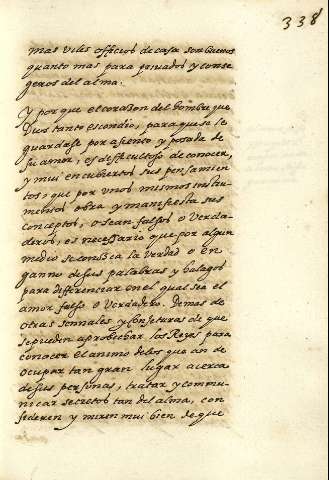 338
mas viles officios de casa son buenos
quanto mas para privados y conse
geros del alma.
Y porque el corazon del hombre que
Dios tanto escondio, para que se le
guardase por asiento y posada de
su amor, es dificultoso de conocer,
y mui encubiertos sus pensamien
tos; que por unos mismos instru
mentos obra y manifiesta sus
conceptos, o sean falsos o verda
deros, es necessario que por algun
medio se conozca la verdad o en
ganno de sus palabras y halagos
para differenciar en el qual sea el
amor falso o verdadero. Demas de
otras sennales y conjeturas de que
se pueden aprobechar los Reyes para
conocer el animo de los que an de
ocupar tan gran lugar acerca
de sus personas, tratar y commu-
nicar secretos tan del alma, con
sideren y miren mui bien de que